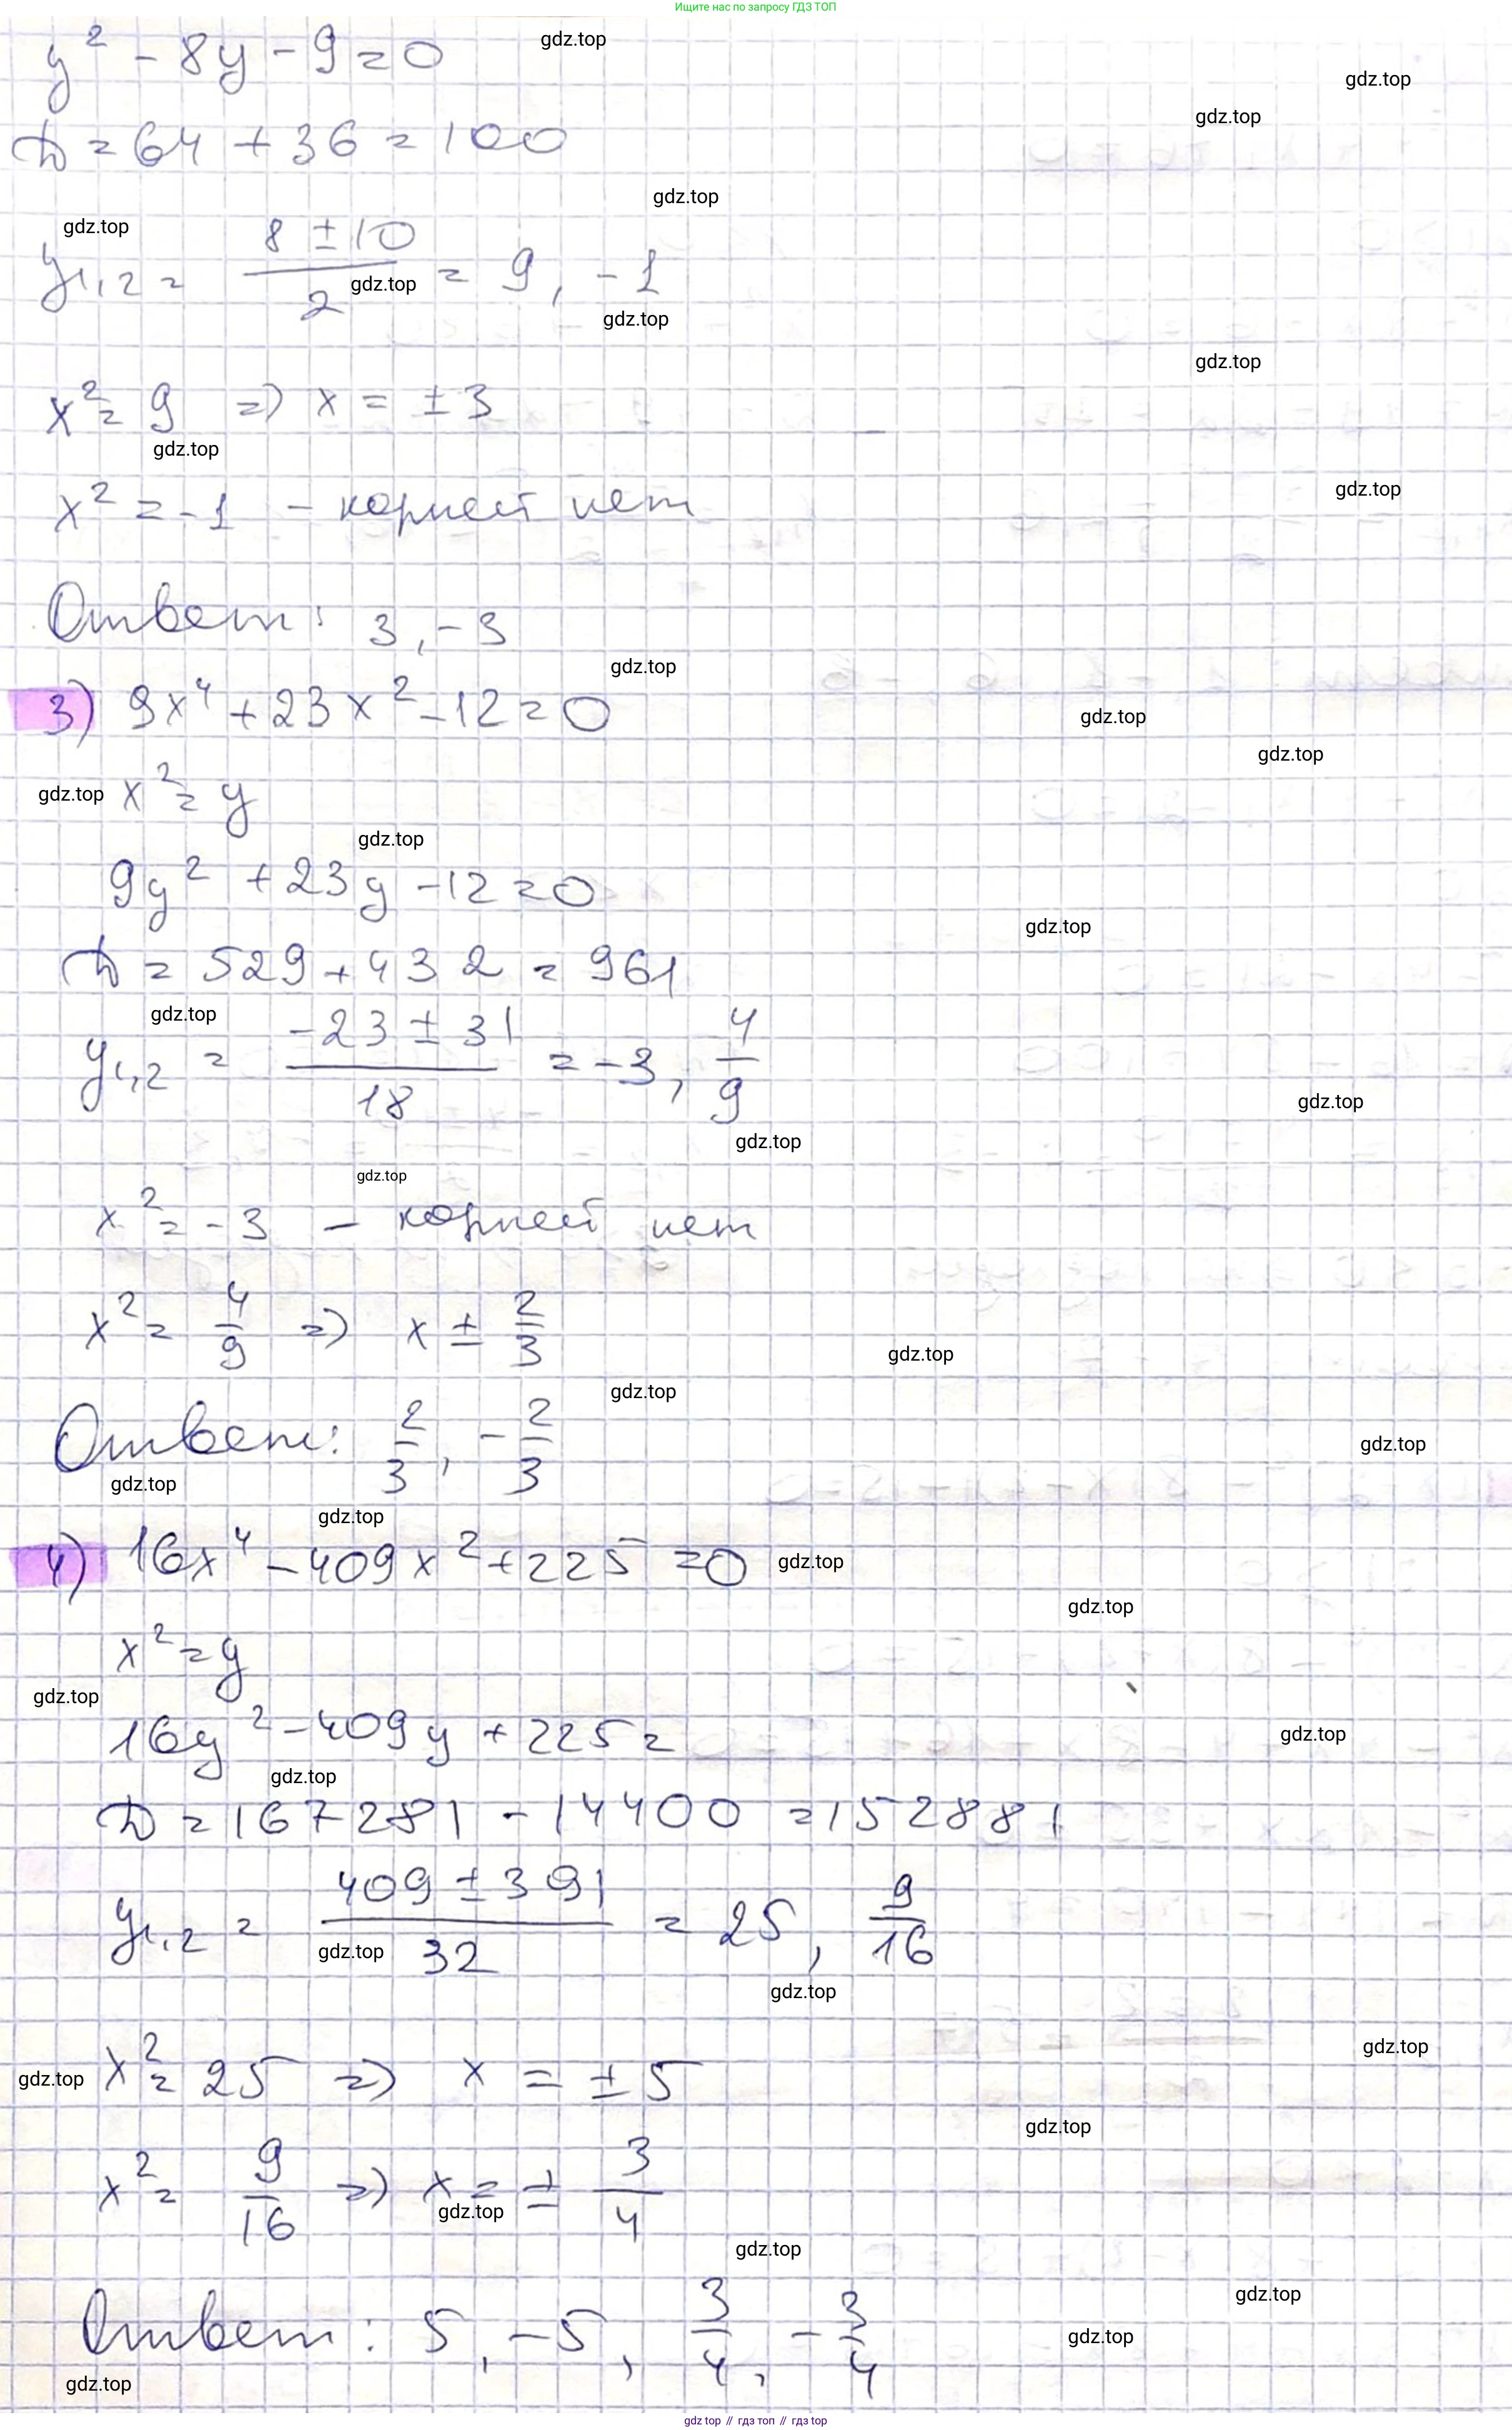 Ищите нас по запросу ГДЗ ТОП
y² - 8y - 9 = 0
gdz.top
gdz.top
gdz.top
D = 64 + 36 = 100
gdz.top
gdz.top
y₁,₂ = (8 ± 10)/2 = 9, -1
gdz.top
gdz.top
gdz.top
x² = 9 => x = ± 3
gdz.top
gdz.top
x² = -1 - корней нет
Ответ: 3, -3
gdz.top
3) 9x⁴ + 23x² - 12 = 0
gdz.top
gdz.top
gdz.top x² = y
gdz.top
9y² + 23y - 12 = 0
gdz.top
D = 529 + 432 = 961
gdz.top
y₁,₂ = (-23 ± 31)/18 = -3, 4/9
gdz.top
gdz.top
gdz.top
x² = -3 - корней нет
x² = 4/9 => x ± 2/3
gdz.top
gdz.top
Ответ: 2/3, -2/3
gdz.top
gdz.top
gdz.top
4) 16x⁴ - 409x² + 225 = 0
gdz.top
gdz.top
x² = y
gdz.top
16y² - 409y + 225 =
gdz.top
gdz.top
D = 167281 - 14400 = 152881
y₁,₂ = (409 ± 391)/32 = 25, 9/16
gdz.top
gdz.top
gdz.top
gdz.top x² = 25 => x = ± 5
gdz.top
x² = 9/16 => x = ± 3/4
gdz.top
gdz.top
gdz.top
Ответ: 5, -5, 3/4, -3/4
gdz.top
gdz.top
gdz.top // гдз топ // gdz top